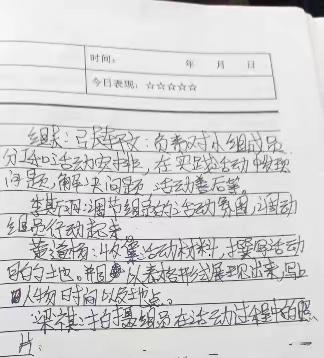 时间: 年 月 日
今日表现: ☆☆☆☆☆
组长:张文:负责对小组成员
分工和活动安排,在实践活动中发现
问题,解决问题,活动善后等。
李斯羽:调节组员的活动氛围,调动
组员行动起来
黄道扬:收集活动材料,撰写活动
目的土也。并且以表格形式展现出来,写上
人物时间以及地点。
梁祺:拍摄组员在活动过程中的照
片。